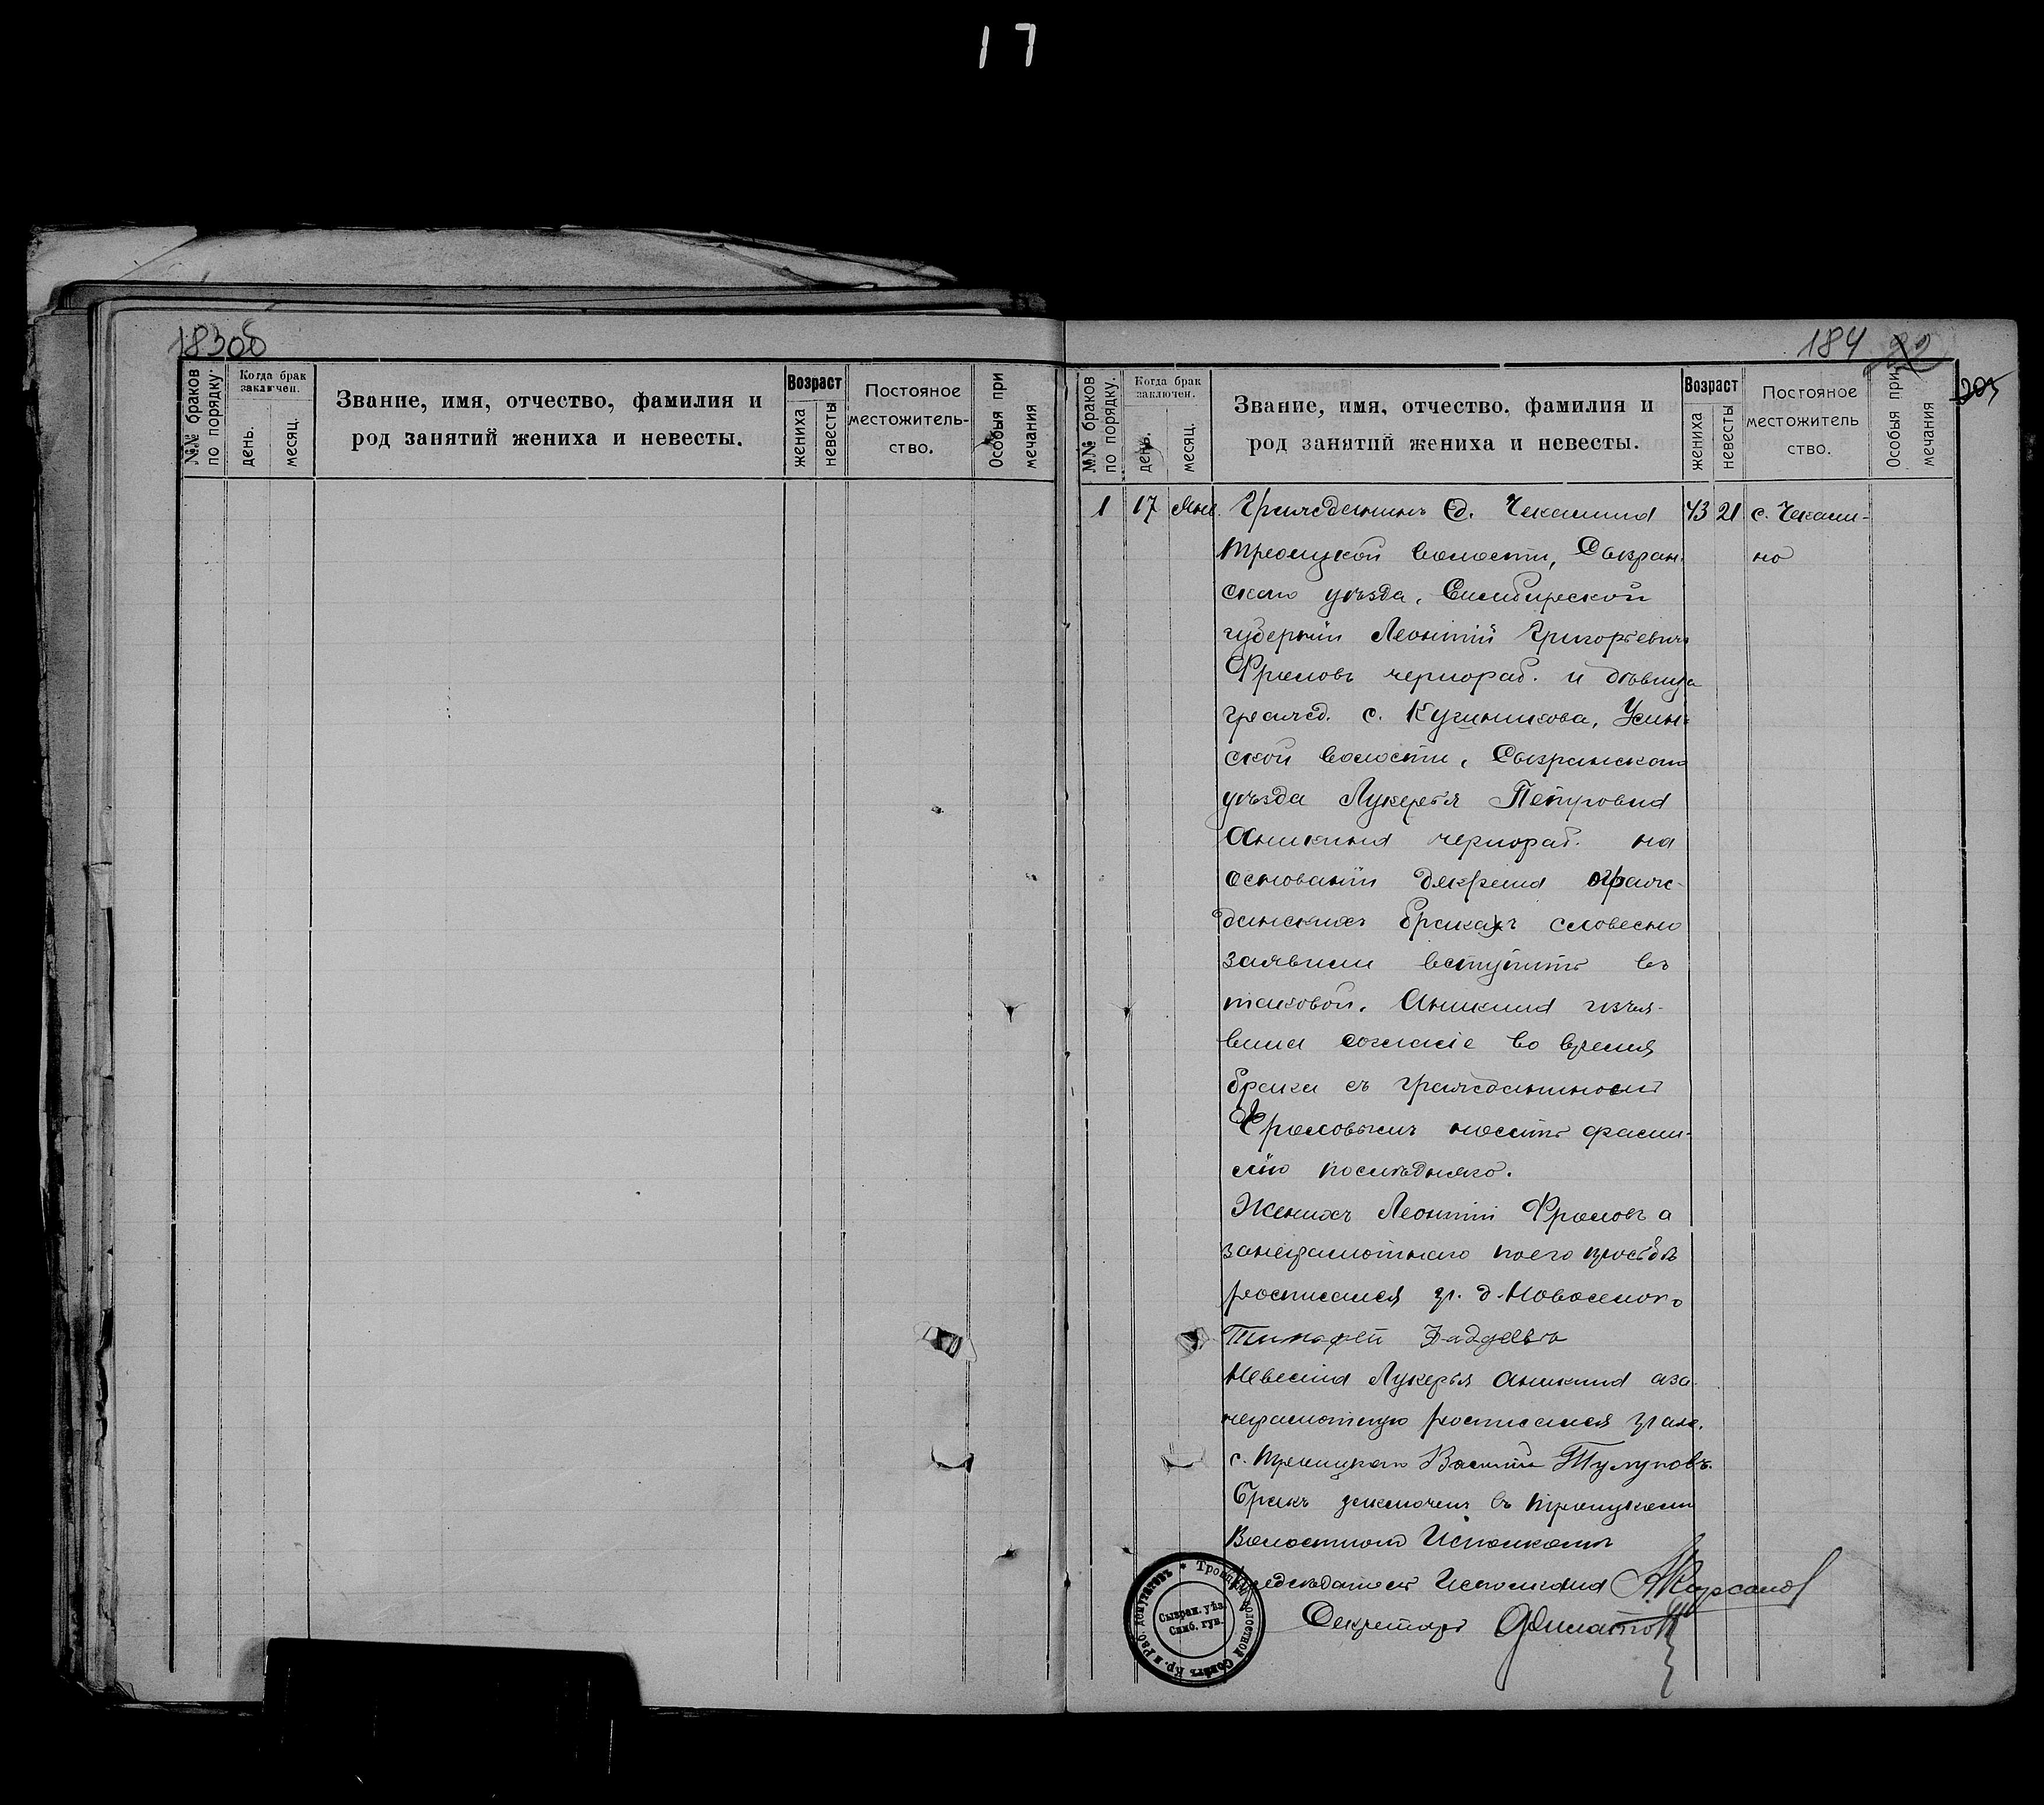 17
183об
№№ браков по порядку.
Когда брак заключен.
день.
месяц.
Звание, имя, отчество, фамилия и
род занятий жениха и невесты.
Возраст
жениха
невесты
Постояное
местожитель-
ство.
Особыя при
мечания
184 22
205
№№ браков по порядку.
Когда брак заключен.
день.
месяц.
Звание, имя, отчество, фамилия и
род занятий жениха и невесты.
Возраст
жениха
невесты
Постояное
местожитель
ство.
Особыя при
мечания
1 17 Гражданинъ д. Чекалина 43 21 с. Чекали-
Троицкой волости, Сызран- но
скаго уѣзда, Симбирской
губерніи Леонтій Григорьевичъ
Фроловъ чернораб. и дѣвица
гражд. с. Кушникова, Усин-
ской волости, Сызранскаго
уѣзда Лукерья Петровна
Аникина чернораб. на
основаніи декрета о граж-
данскихъ бракахъ словесно
заявили вступить въ
таковой. Аникина изъя-
вила согласіе во время
брака съ гражданиномъ
Фроловымъ носить фами-
лію послѣдняго.
Женихъ Леонтій Фроловъ а
занеграмотнаго поего просьбѣ
росписался гр. д.
Тимофей Фадеевъ
Невеста Лукерья Аникина аза
неграмотную росписался граж.
с. Троицкаго Василій Тулуповъ.
Бракъ заключен въ Троицкомъ
Волостномъ Исполкомѣ
Предсѣдатель Исполкома
Секретарь
Троицкій Волостной Совѣтъ Кр. и Раб. депутатовъ
Сызран. уѣз.
Симб. губ.